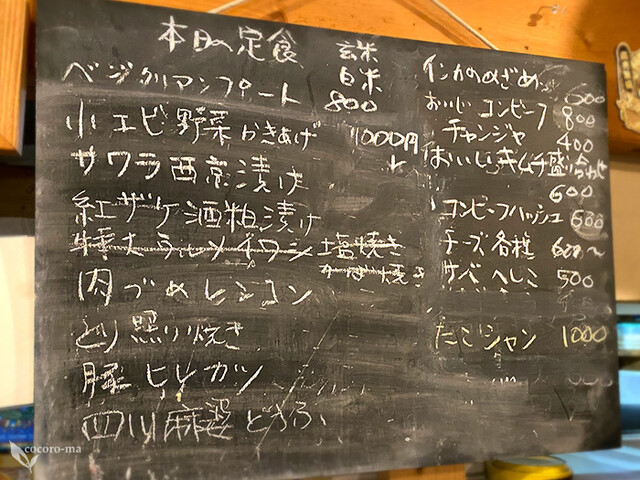 本日の定食
玄米
白米
ベジタリアンプレート 800
小エビ野菜かきあげ 1000円
サワラ西京漬け
紅ザケ酒粕漬け
特大 イワシ 塩焼き
かば焼き
肉づめレンコン
とり照り焼き
豚ヒレカツ
四川麻婆どうふ
インカのめざめ 500
おいしいコンビーフ 800
チャンジャ 400
おいしいキムチ盛り合わせ
600
コンビーフハッシュ 600
チーズ各種 600〜
サバへしこ 500
たこジャン 1000
cocoro-ma